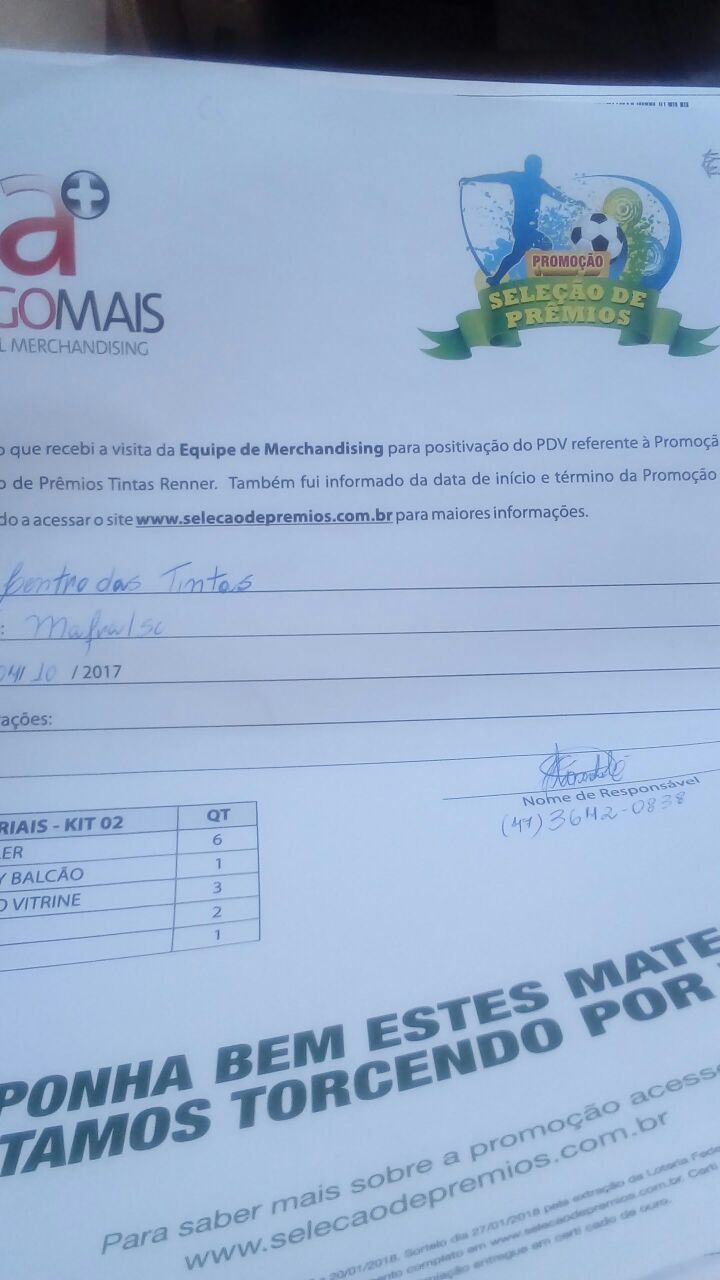 a+
GOMAIS
L MERCHANDISING
PROMOÇÃO
SELEÇÃO DE
PRÊMIOS
o que recebi a visita da Equipe de Merchandising para positivação do PDV referente à Promoçã
o de Prêmios Tintas Renner. Também fui informado da data de início e término da Promoção
do a acessar o site www.selecaodepremios.com.br para maiores informações.
Centro das Tintas
: Mafra/SC
04/10 / 2017
ações:
Nome de Responsável
(47) 3642-0838
RIAIS - KIT 02 QT
ER 6
Y BALCÃO 1
O VITRINE 3
2
1
PONHA BEM ESTES MATE
TAMOS TORCENDO POR
Para saber mais sobre a promoção acesse
www.selecaodepremios.com.br
20/01/2018. Sorteio dia 27/01/2018 pela extração da Loteria Fede
ento completo em www.selecaodepremios.com.br. Certi
miação entregue em certi cado de ouro.